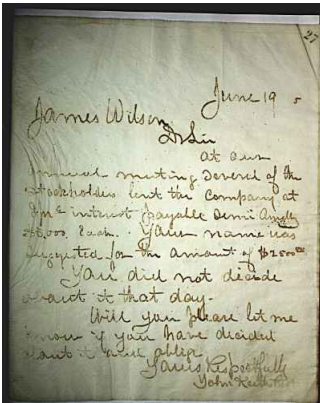 27
June 19 5
James Wilson
Dr Sir
At our
annual meeting Several of the
Stockholders lent the Company at
interest payable Semi Annully
Each. Your name was
suggested for the amount of $2500
You did not decide
about it that day.
Will you please let me
know if you have decided
about it and oblige
Yours Respectfully
John Keith